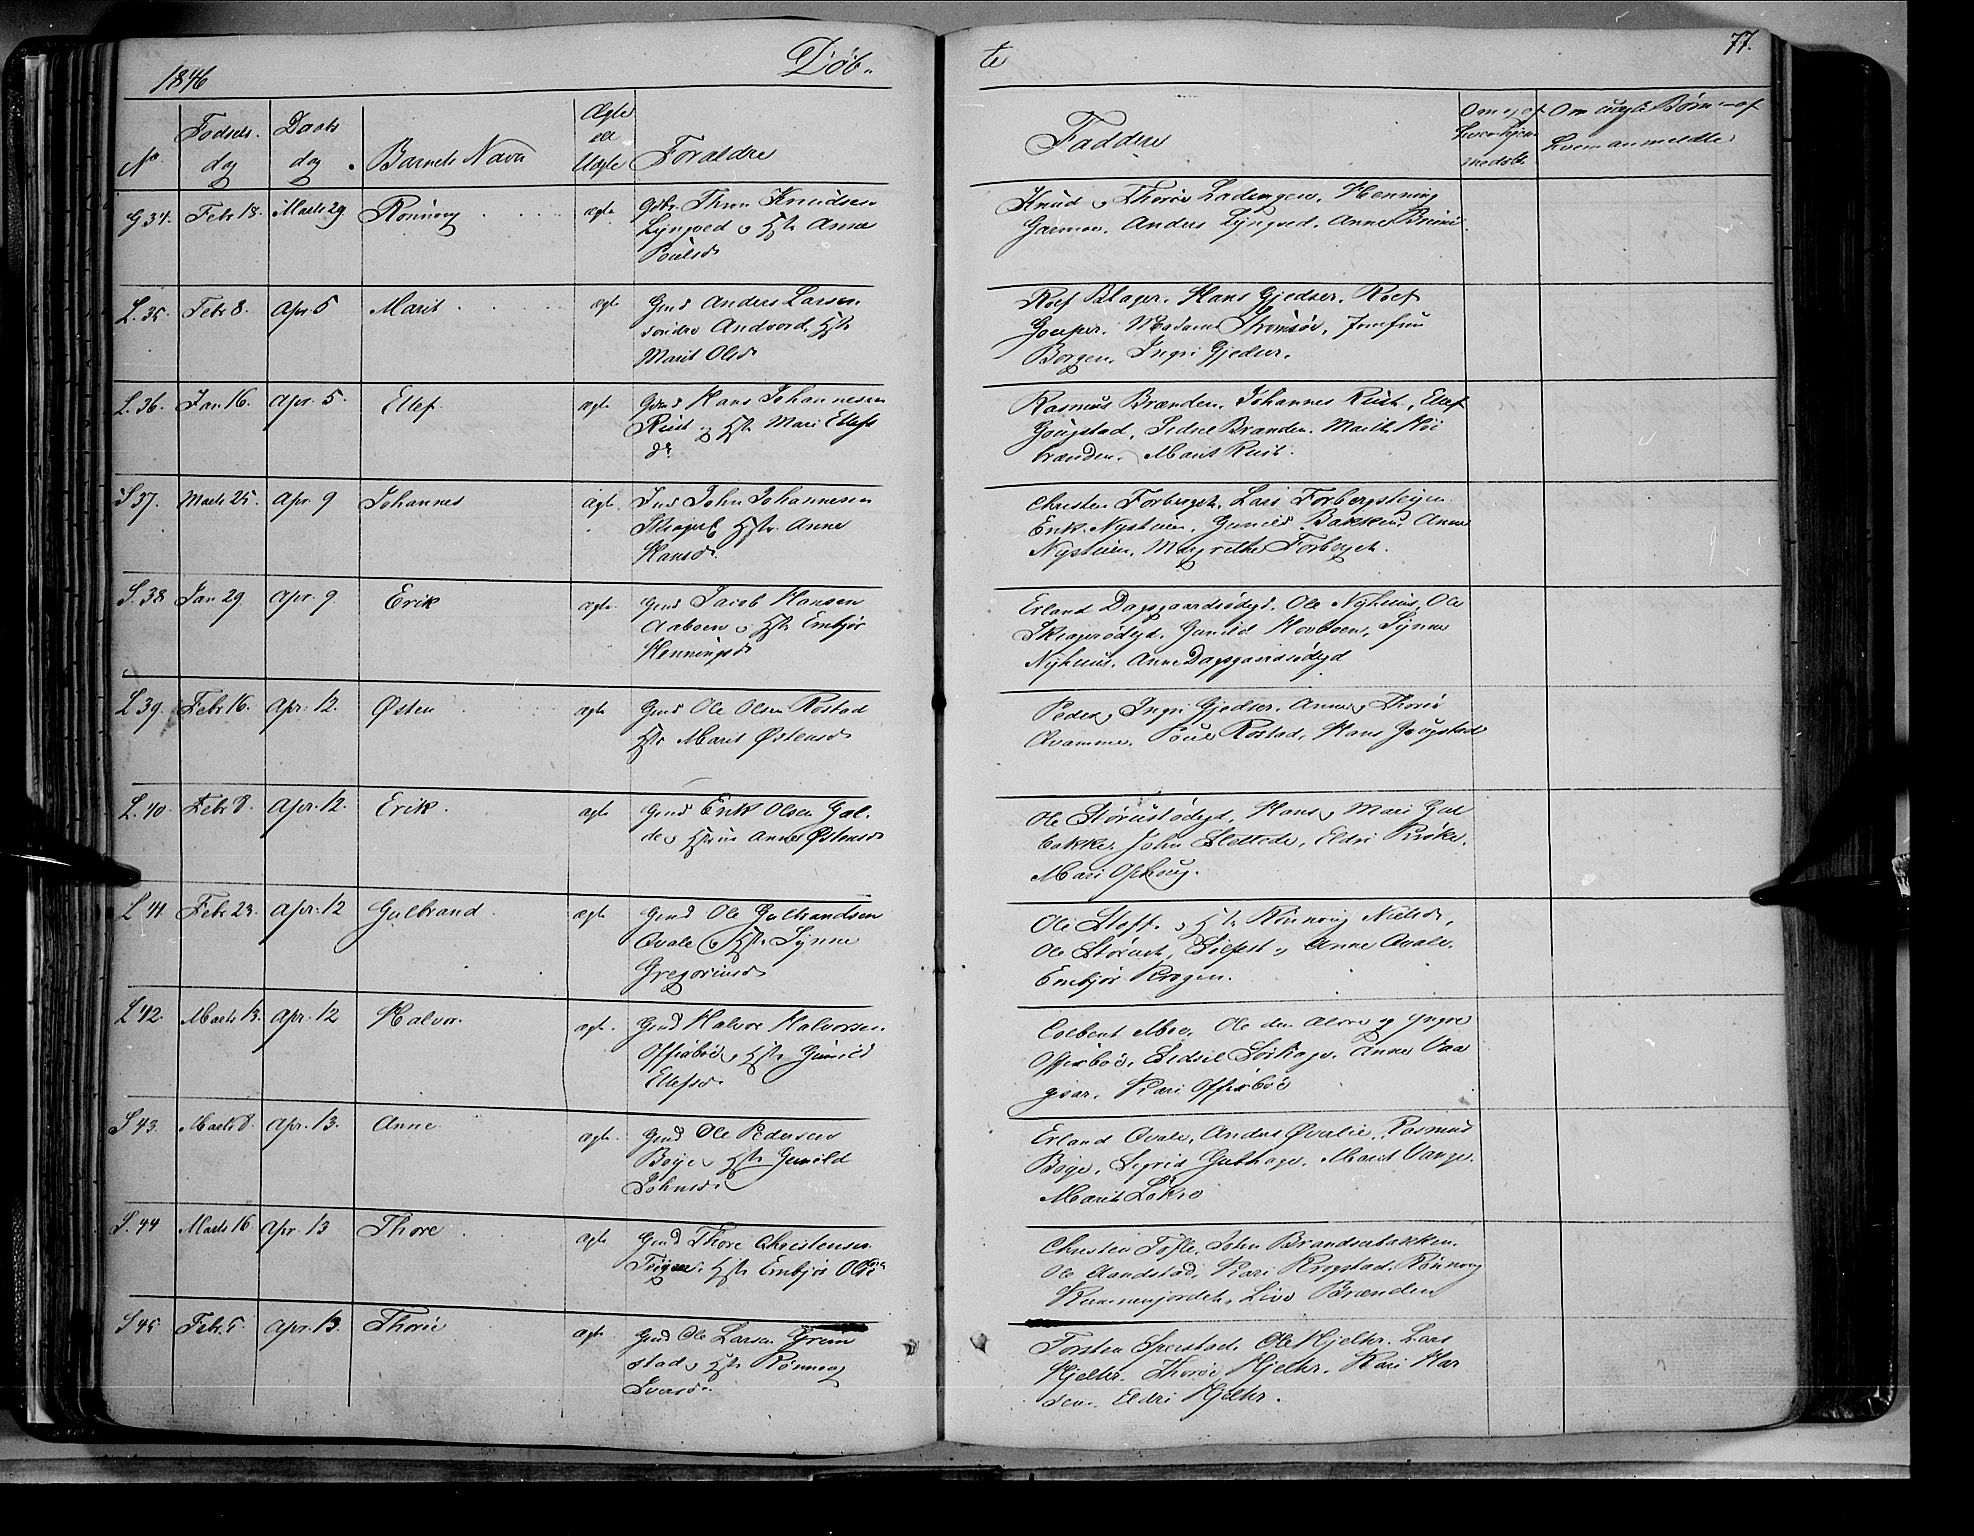 1846 Døb-
te 77.
No Fødsels- dag Daabs dag Barnets Navn Ægte ell Uægte Forældre
Faddere
Om Uægte Børn - af hvem anmeldte
G 34. Febr 18. Marts 29 Rønnoug ægte Gbr. Thron Knudsen
Lyngved og Hstr Anne
Poulsd.
Knud og Thorø Ladengen, Henning
Garmoe, Anders Lyngved, Anne Brimi.
L. 35. Febr 8. Apr. 5 Marit ægte Gmd Anders Larsen
søndre Andvord, Hstr
Marit Olsd.
Roef Blager, Hans Gjedser, Roef
Madame Strømsøe, Jomfru
Borgen, Ingri Gjedser.
L. 36. Jan 16. Apr. 5. Ellef ægte Gmd Hans Johannesen
Rust og Hstr Mari Ellefs
dr.
Rasmus Brænden, Johannes Rust, Ellef
Gougstad, Sidsel Brænden, Marit Høi
brænden, Marit Rust.
S 37. Marts 25. Apr. 9 Johannes ægte Ind John Johannesen
Skager Hstr Anne
Hansd.
Christen Forberget, Lars Forbergsteigen
Erik Nystuen, Gunild Bakken, Anne
Nystuen, Margrethe Forberget.
S. 38 Jan 29 Apr. 9 Erik ægte Gmd Jacob Hansen
Aaboen og Hstr Embjør
Henningsd.
Erland Dagsgaardsødegd, Ole Nyhuus, Ole
Skiagerødegd, Gunild Hovboen, Synne
Nyhuus, Anne Dagsgaardsødegd
L 39. Febr 16. Apr. 12. Østen ægte Gmd Ole Olsen Rostad
Hstr Marit Østensd.
Peder og Ingri Gjedser, Anne og Thorø
Qvamme, Poul Rostad, Hans Gougstad
L. 40. Febr 8. Apr. 12. Erik ægte Gmd Erik Olsen Gal-
de og Hstru Anne Østensd.
Ole Størustødegd, Hans og Mari Gal
bakke, John Slettede, Eldri Røike,
Mari Ophoug.
L 41. Febr 23. Apr. 12 Gulbrand ægte Gmd Ole Gulbrandsen
Qvale og Hstr Synne
Gregoriusd.
Ole Sloft og Hstr Rønnoug Nielsd,
Ole Størust, og Anne Qvale,
Embjør Krogen.
L 42. Marts 13. Apr. 12 Halvor ægte Gmd Halvor Halvorsen
Offigsbøe, Hstr Gunild
Ellefsd.
Ole den ældre og yngre
Offigsbøe, Sidsel Anne Vaa
gsar, Kari Offigsbøe
S 43. Marts 8. Apr. 13. Anne ægte Gmd Ole Pedersen
Bøije, Hstr Gunild
Johnsd.
Erland Qvale, Anders Øvalie, Rasmus
Bøije, Sigrid Gubhage, Marit Vange,
Marit Løkre
S. 44 Marts 16 Apr. 13 Thore ægte Gmd Thore Christensen
Teigen, Hstr Embjør Olsd
Christen Tofte, John Brandsarbakken,
Ole Aandstad, Kari Krogstad, Rønnoug
Live Brænden
S 45 Febr. 5. Apr. 13. Thore ægte Gmd Ole Larsen Grim
stad og Hstr Rønnoug
Iversd.
Torsten Sperstad, Ole Hjeltar, Lars
Hjeltar, Thorø Hjeltar, Kari Har
den, Eldri Hjeltar.